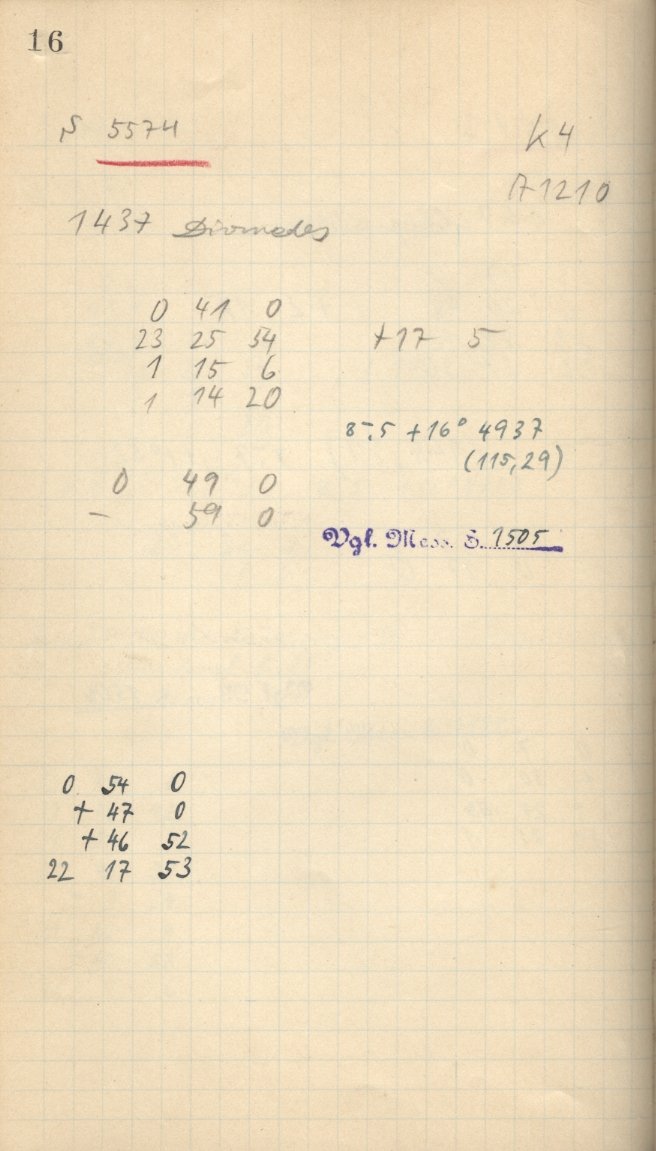 16
S 5574
K4
A1210
1437 Diomedes
0 41 0
23 25 54 +17 5
1 15 6
1 14 20
85,5 +16° 4937
(115,29)
0 49 0
- 59 0
Vgl. Mess. S. 1505
0 54 0
+ 47 0
+ 46 52
22 17 53